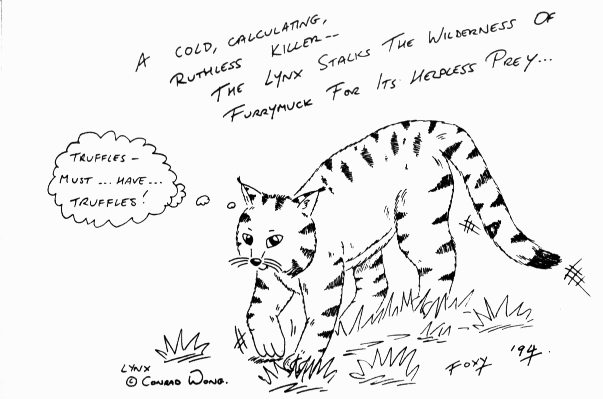 A COLD, CALCULATING,
RUTHLESS KILLER--
THE LYNX STALKS THE WILDERNESS OF
FURRYMUCK FOR ITS HELPLESS PREY...
TRUFFLES -
MUST ... HAVE ...
TRUFFLES!
LYNX
© CONRAD WONG.
FOXY '94.